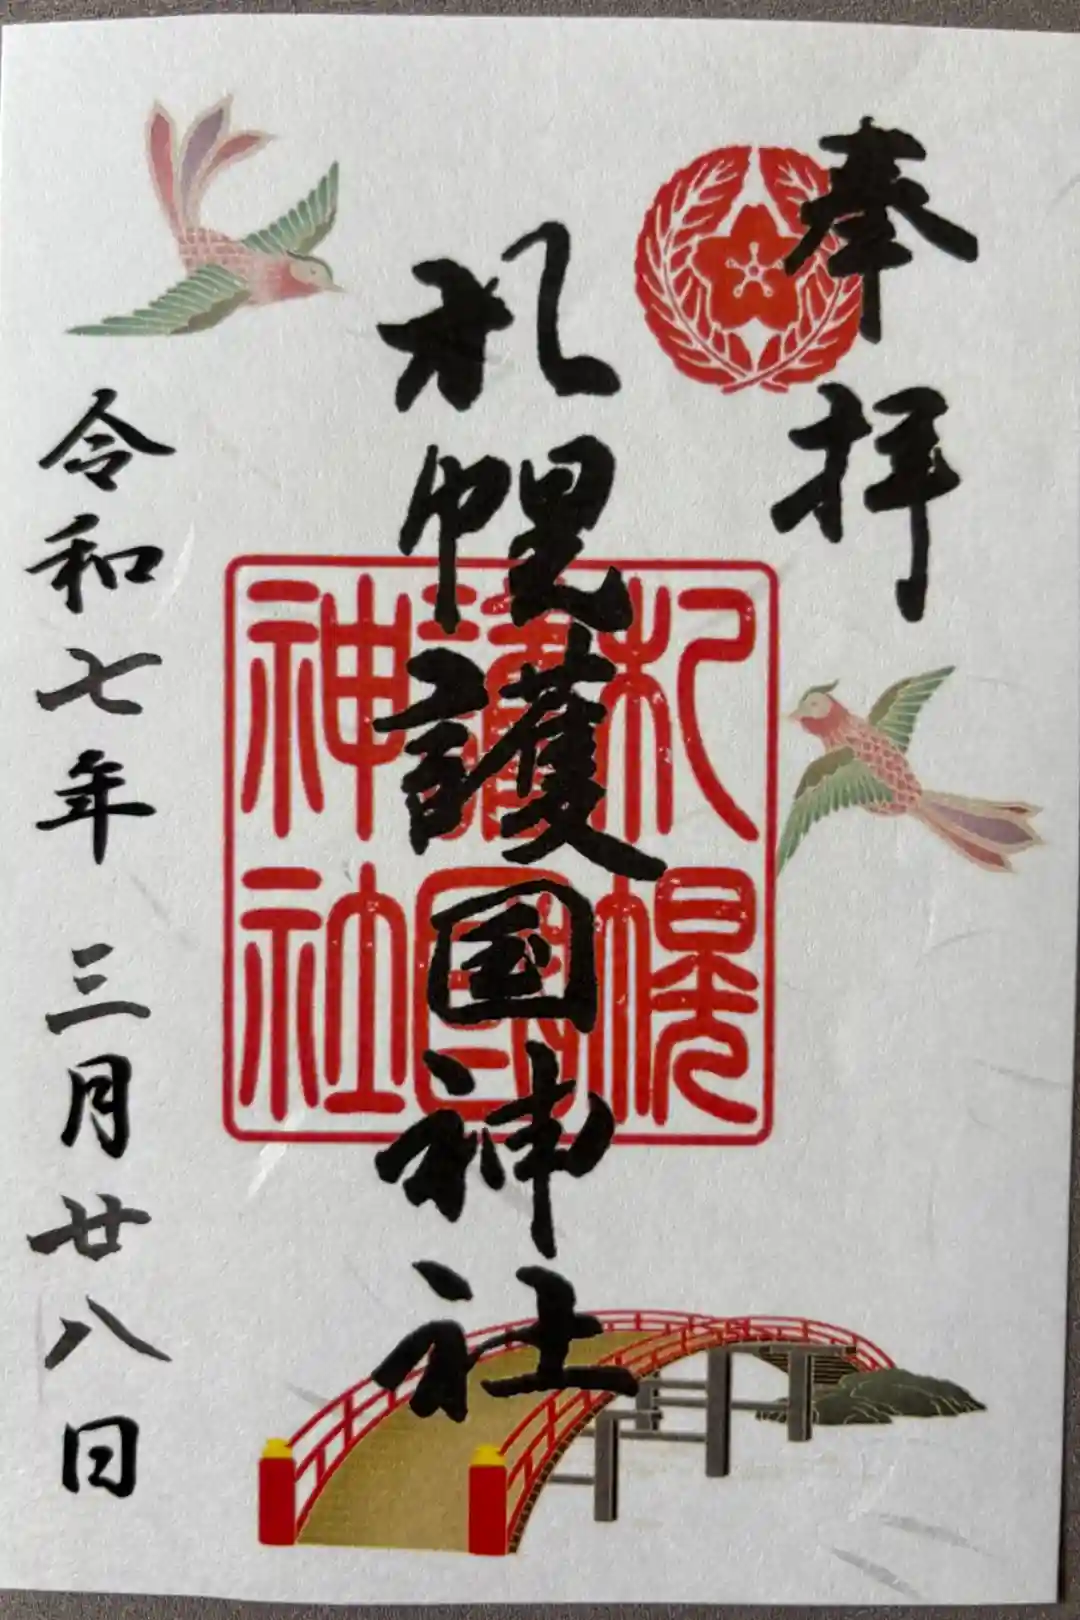 奉拝
札幌護国神社
札幌
護國
神社
令和七年 三月廿八日